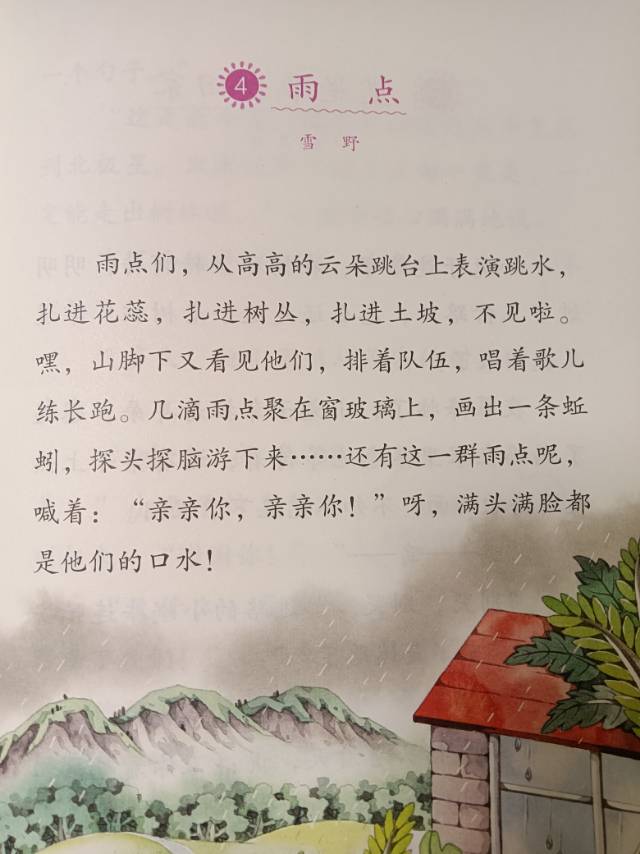 4 雨点
雪野
雨点们，从高高的云朵跳台上表演跳水，
扎进花蕊，扎进树丛，扎进土坡，不见啦。
嘿，山脚下又看见他们，排着队伍，唱着歌儿
练长跑。几滴雨点聚在窗玻璃上，画出一条蚯
蚓，探头探脑游下来……还有这一群雨点呢，
喊着：“亲亲你，亲亲你！”呀，满头满脸都
是他们的口水！